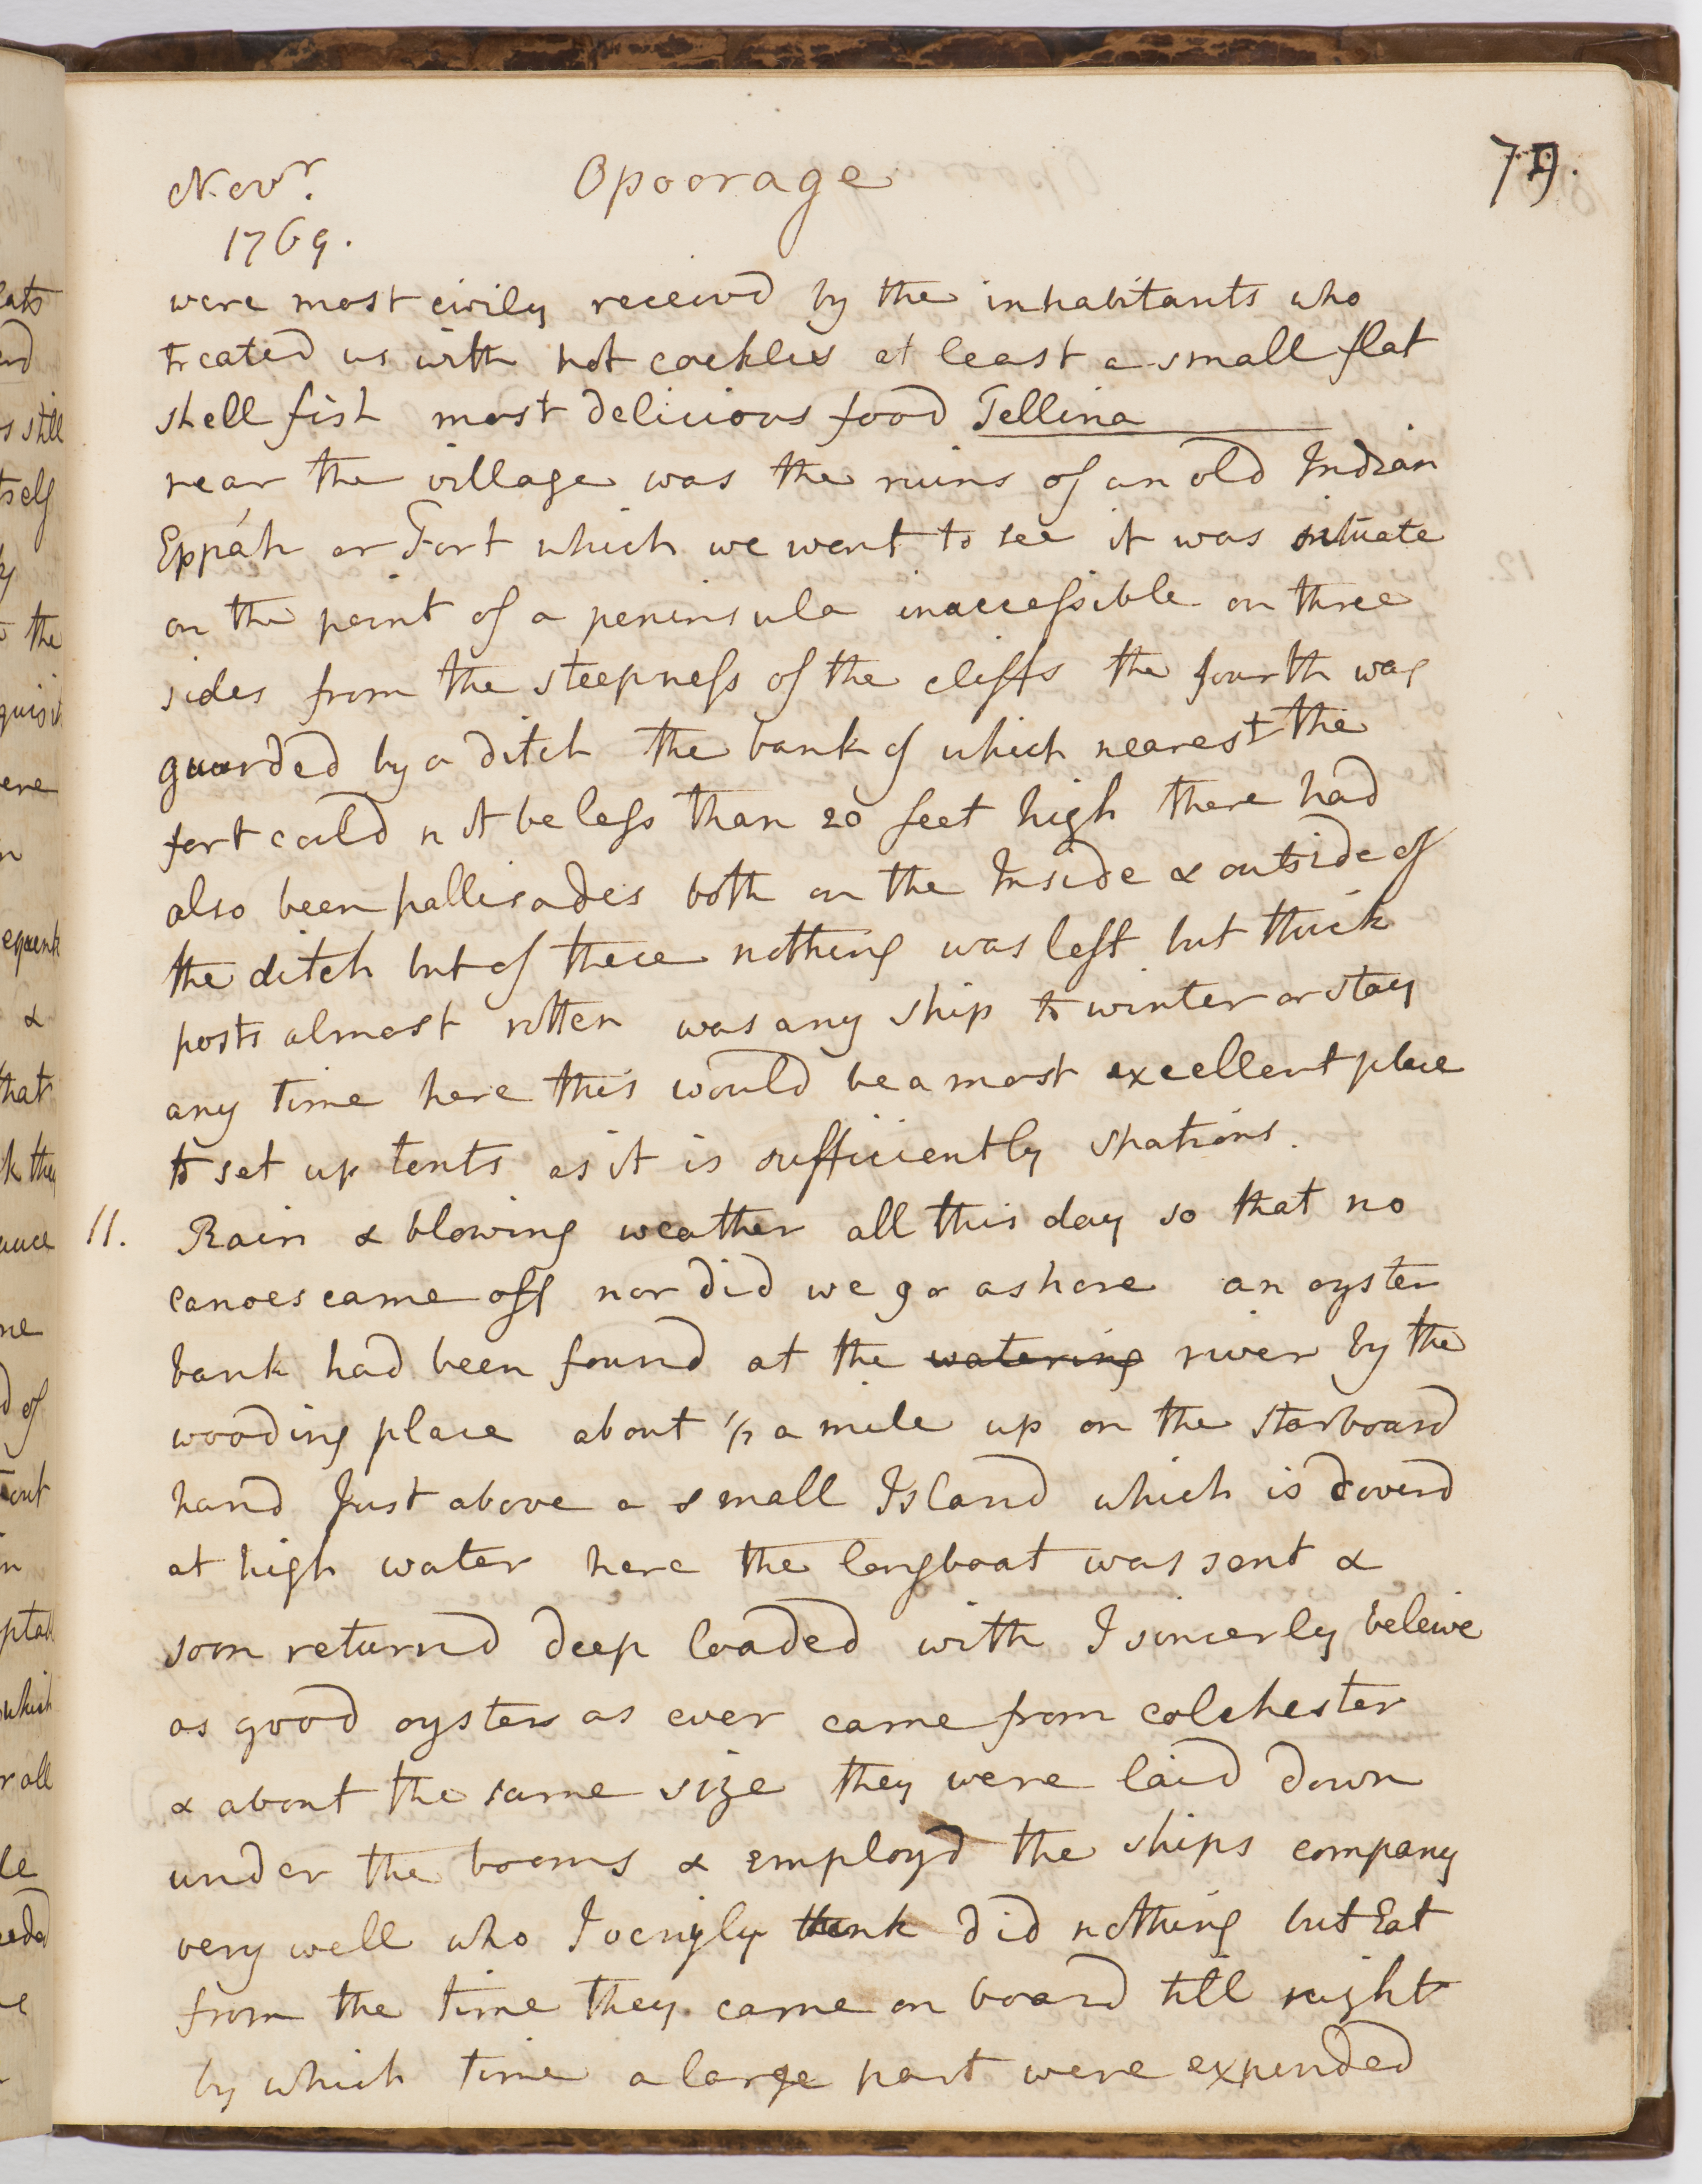 Novr. Opoorage 79.
1769.
were most civily receivd by the inhabitants who
treated us with hot cockles at least a small flat
shell fish most delicious food Tellina
near the village was the ruins of an old Indian
Eppáh or Fort which we went to see it was situate
on the point of a peninsula inaccessible on three
sides from the steepness of the cliffs the fourth was
guarded by a ditch the bank of which nearest the
fort could not be less than 20 feet high there had
also been pallisades both on the Inside & outside of
the ditch but of these nothing was left but thick
posts almost rotten was any ship to winter or stay
any time here this would be a most excellent place
to set up tents as it is sufficiently spatious.
11. Rain & blowing weather all this day so that no
canoes came off nor did we go ashore an oyster
bank had been found at the watering river by the
wooding place about 1/2 a mile up on the starboard
hand Just above a small Island which is coverd
at high water here the longboat was sent &
soon returnd deep loaded with I sincerly beleive
as good oysters as ever came from colchester
& about the same size they were laid down
under the booms & employd the ships company
very well who I verily think did nothing but Eat
from the time they came on board till night
by which time a large part were expended